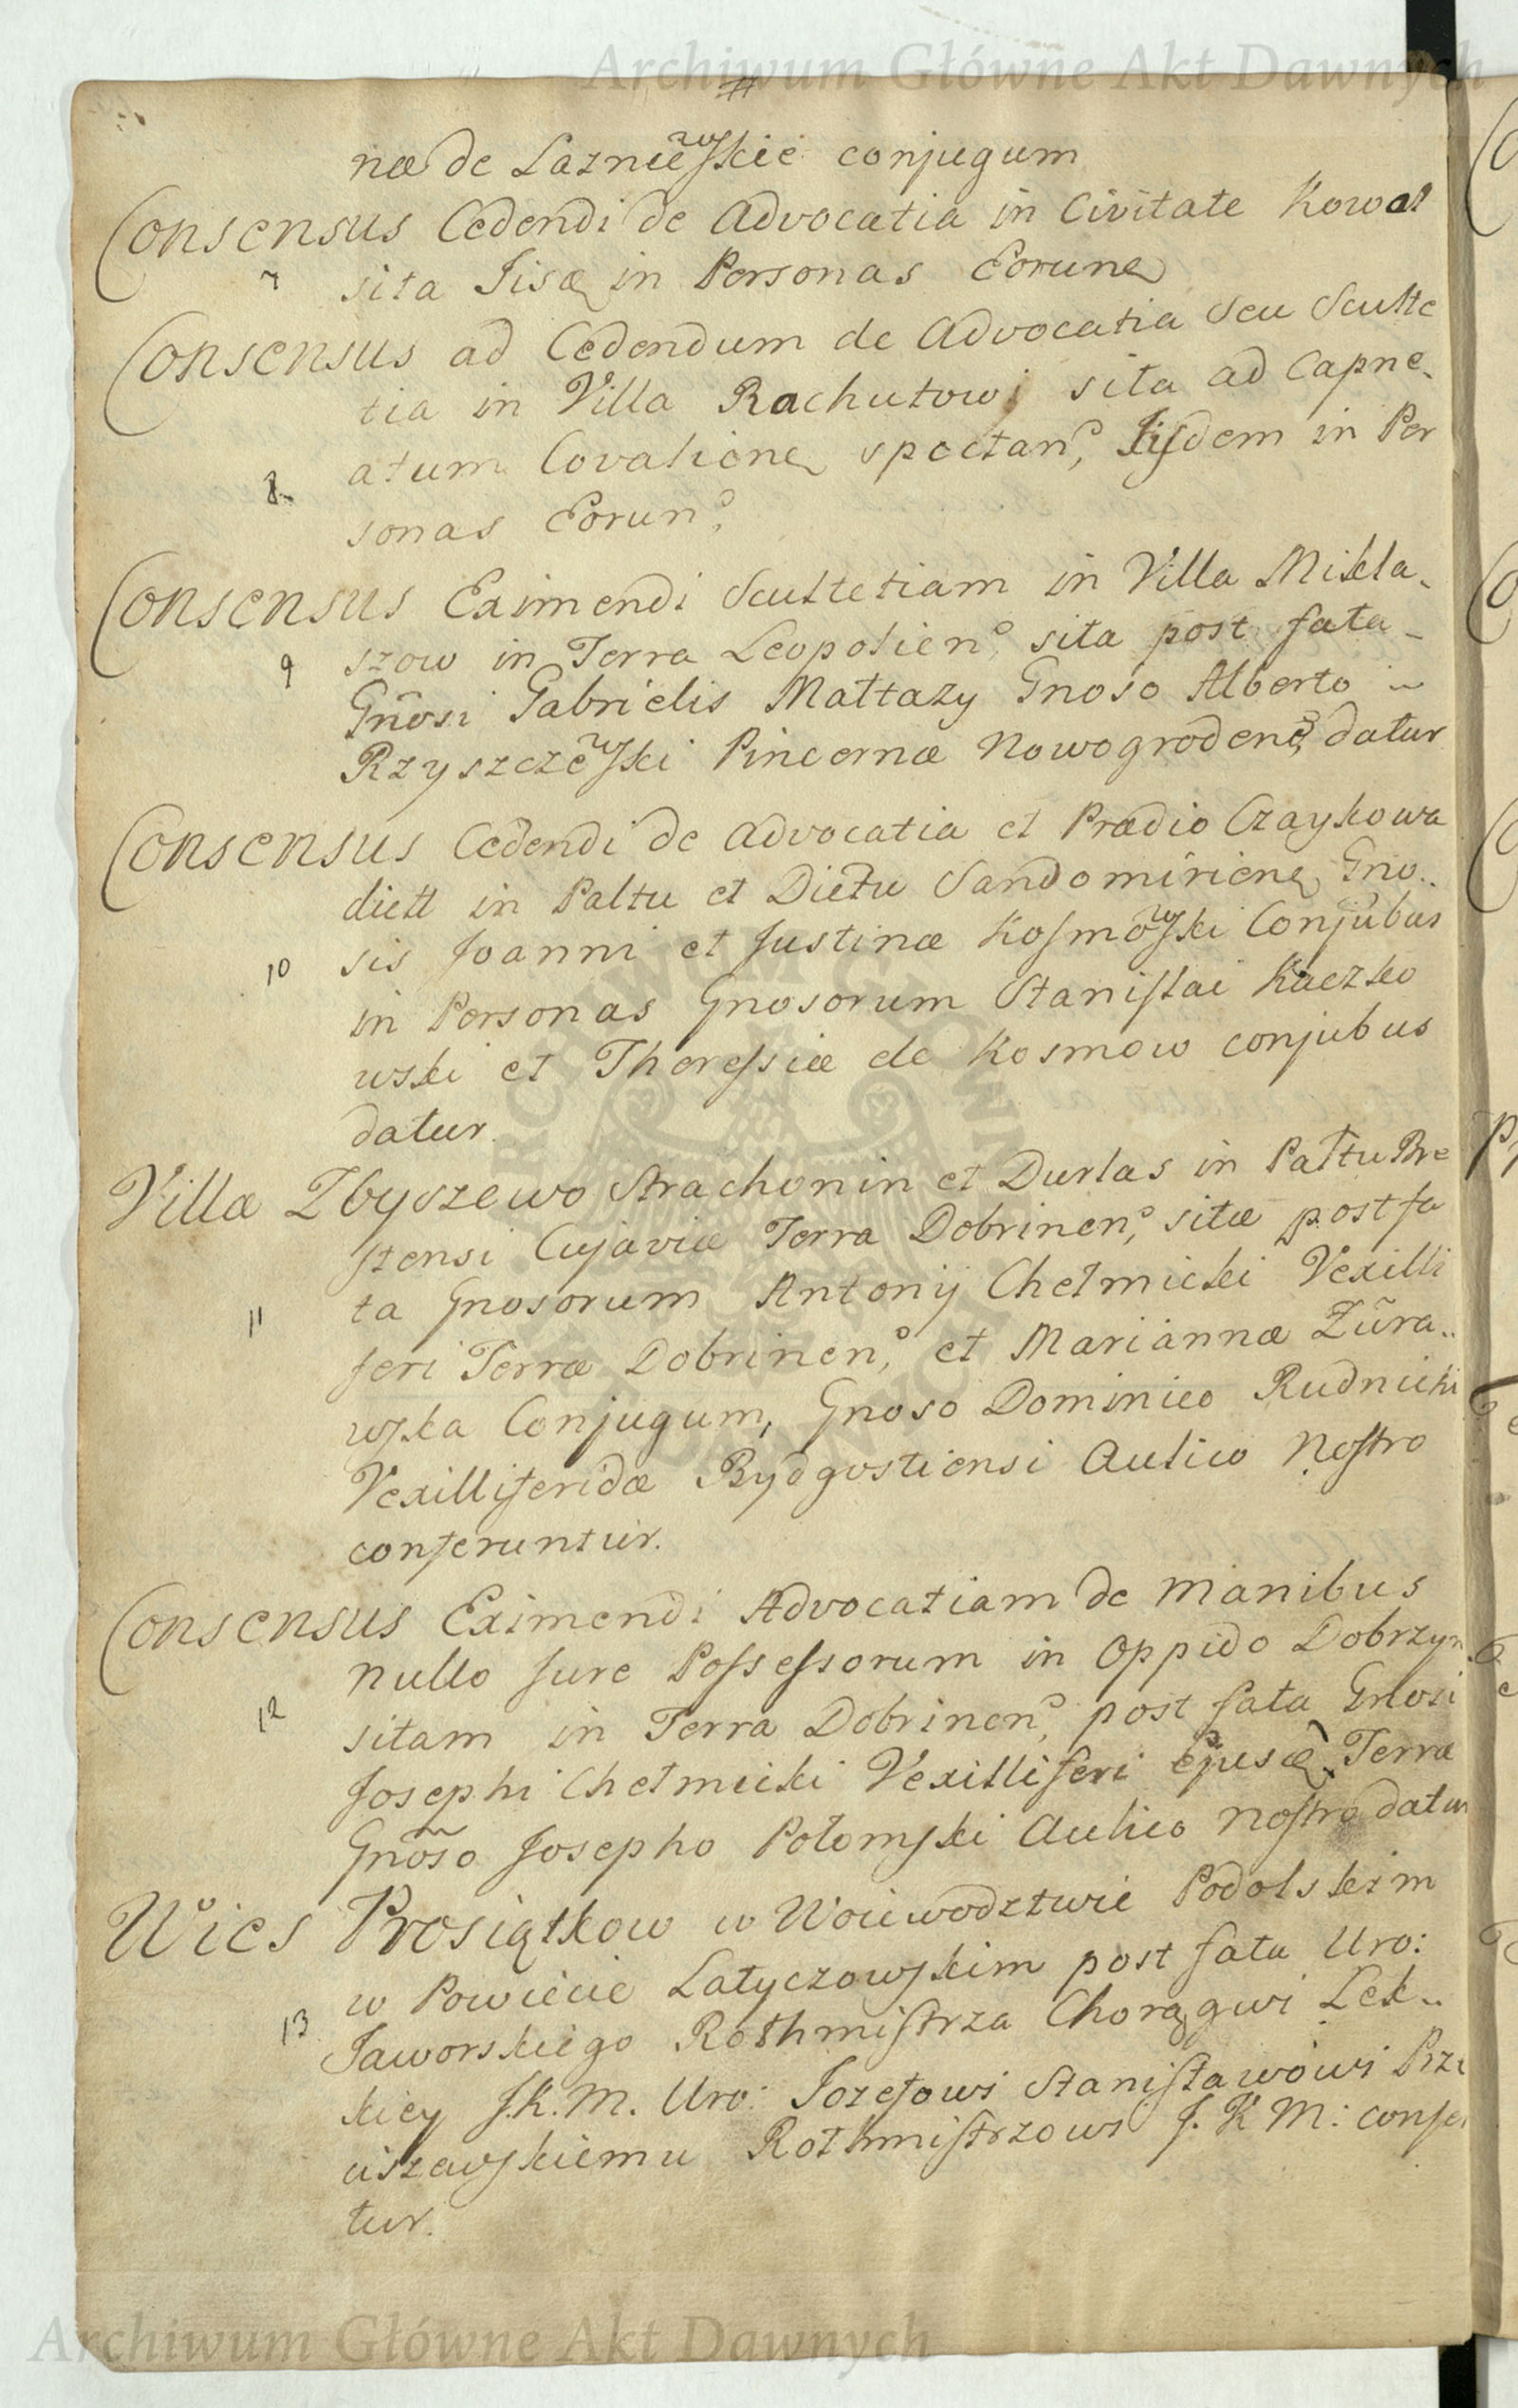 Archiwum Główne Akt Dawnych
næ de Łazniewskie conjugum
Consensus Cedendi de Advocatia in Civitate Kowal
7 sita Iisd in Personas Eorund
Consensus ad Cedendum de Advocatia seu Sculte
tia in Villa Rachutowi sita ad Capne-
atum Covaliene spectan, Iisdem in Per
8 sonas Eorun,
Consensus Eximendi Scultetiam in Villa Mikla-
9 szow in Terra Leopolien, sita post fata
Gnosi Gabrielis Mattazy Gnoso Alberto
Rzyszczewski Pincernæ Nowogroden, datur
Consensus Cedendi de Advocatia et Prædio Czaykowa
dictt in Palttu et Dicttu Sandomirien, Gno..
10 sis Joanni et Justinæ Kosmowski Conjubus
in Personas Gnosorum Stanislai Kaczko
wski et Theressiæ de Kosmow conjubus
datur.
Villæ Zbyszewo Strachonin et Durlas in Palttu Bre
stensi Cujaviæ Terra Dobrinen, sitæ post fa
11 ta Gnosorum Antonij Chełmicki Vexilli
feri Terræ Dobrinen, et Mariannæ Zura..
wska Conjugum, Gnoso Dominico Rudnicki
Vexilliferidæ Bydgostiensi Aulico Nostro
conferuntur.
Consensus Eximendi Advocatiam de Manibus
nullo Jure Possessorum in Oppido Dobrzyn
12 sitam in Terra Dobrinen, post fata Gnosi
Josephi Chełmicki Vexilliferi Ejusd Terræ
Gnoso Josepho Połomski Aulico Nostro datur
Wies Prosiątkow w Woiewodztwie Podolskim
w Powiecie Latyczowskim post fata Uro:
13 Jaworskiego Rothmistrza Chorągwi Lek..
kiey J.K.M. Uro: Jozefowi Stanisławowi Prze
ciszewskiemu Rothmistrzowi J. K M: confer
tur.
Archiwum Główne Akt Dawnych